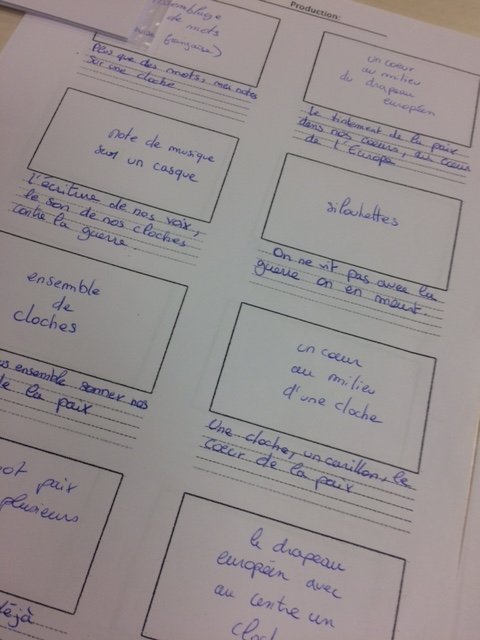 Production:
assemblage
de mots
française)
Plus que des mots, mes notes
sur une cloche
un coeur
au milieu
du drapeau
européen
Le tintement de la paix
dans nos coeurs, au coeur
de l'Europe
note de musique
sur un casque
L'écriture de nos voix,
le son de nos cloches
contre la guerre
silouhettes
On ne vit pas avec la
guerre on en meurt.
ensemble
de
cloches
ensemble sonner nos
de la paix
un coeur
au milieu
d'une cloche
Une cloche, un carillon, le
coeur de la paix
mot paix
plusieurs
déjà
le drapeau
européen avec
au centre un